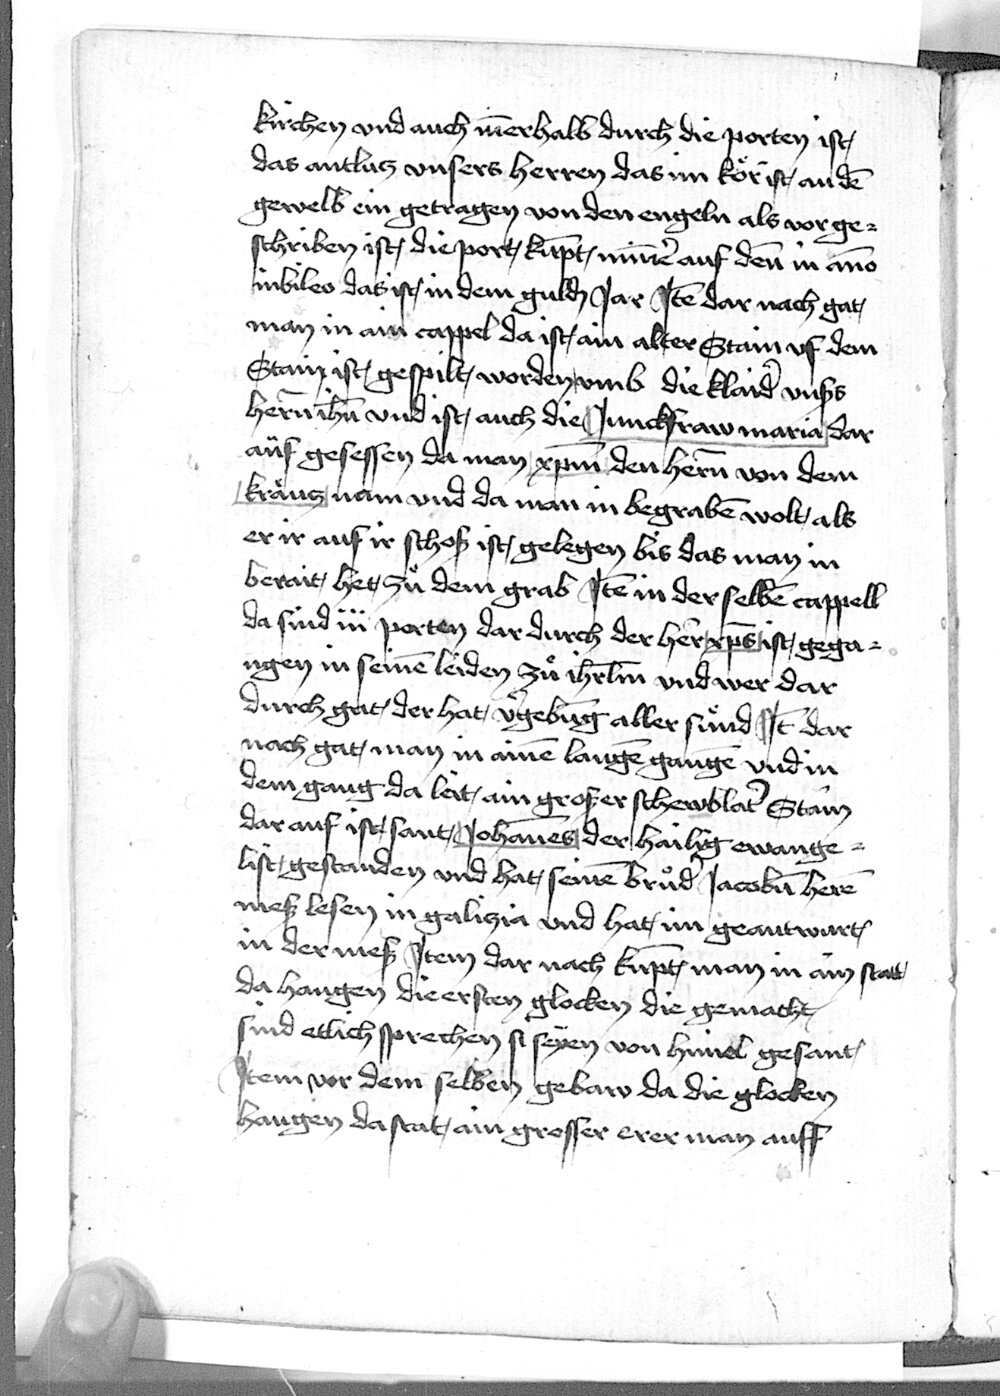 kirchen vnd auch in̄erhalb durch die porten ist
das antlutz vnsers herren das im kör ist an dē
gewelb ein getragen von den engeln als vor ge=
schriben ist die port kūpt nim̄er auf den̄ in an̄o
iubileo das ist in dem guldn Jar Itē dar nach gat
man in ain cappel da ist ain alter Stain vf dem
Stain ist gespilt worden vmb die klaider vnsers
herr̄n ih̄u vnd ist auch die Junckfraw maria dar
auf gesessen da man xp̄m den herr̄n von dem
kräutz nam vnd da man in begrabē wolt als
er ir auf ir schoß ist gelegen bis das man in
berait het zů dem grab Itē in der selbē cappell
da sind iii porten dar durch der her xp̄s ist gega=
ngen in seinē leiden zů ih̄rlm̄ vnd wer dar
durch gat der hat v̄gebūg aller sünd It̄ dar
nach gat man in ainē langē gangē vnd in
dem gang da leit ain großer schewblatt̄ Stain
dar auf ist sant Johan̄es der hailig ewange=
list gestanden vnd hat seinē brůder Jacobū herē
meß lesen in galizia vnd hat im geantwurt
in der meß Item dar nach kūpt man in ain statt
da hangen die ersten glocken die gemacht
sind etlich sprechen si seyen von himel gesant
Item vor dem selben gebaw da die glocken
hangen da stat ain grosser erer man auff